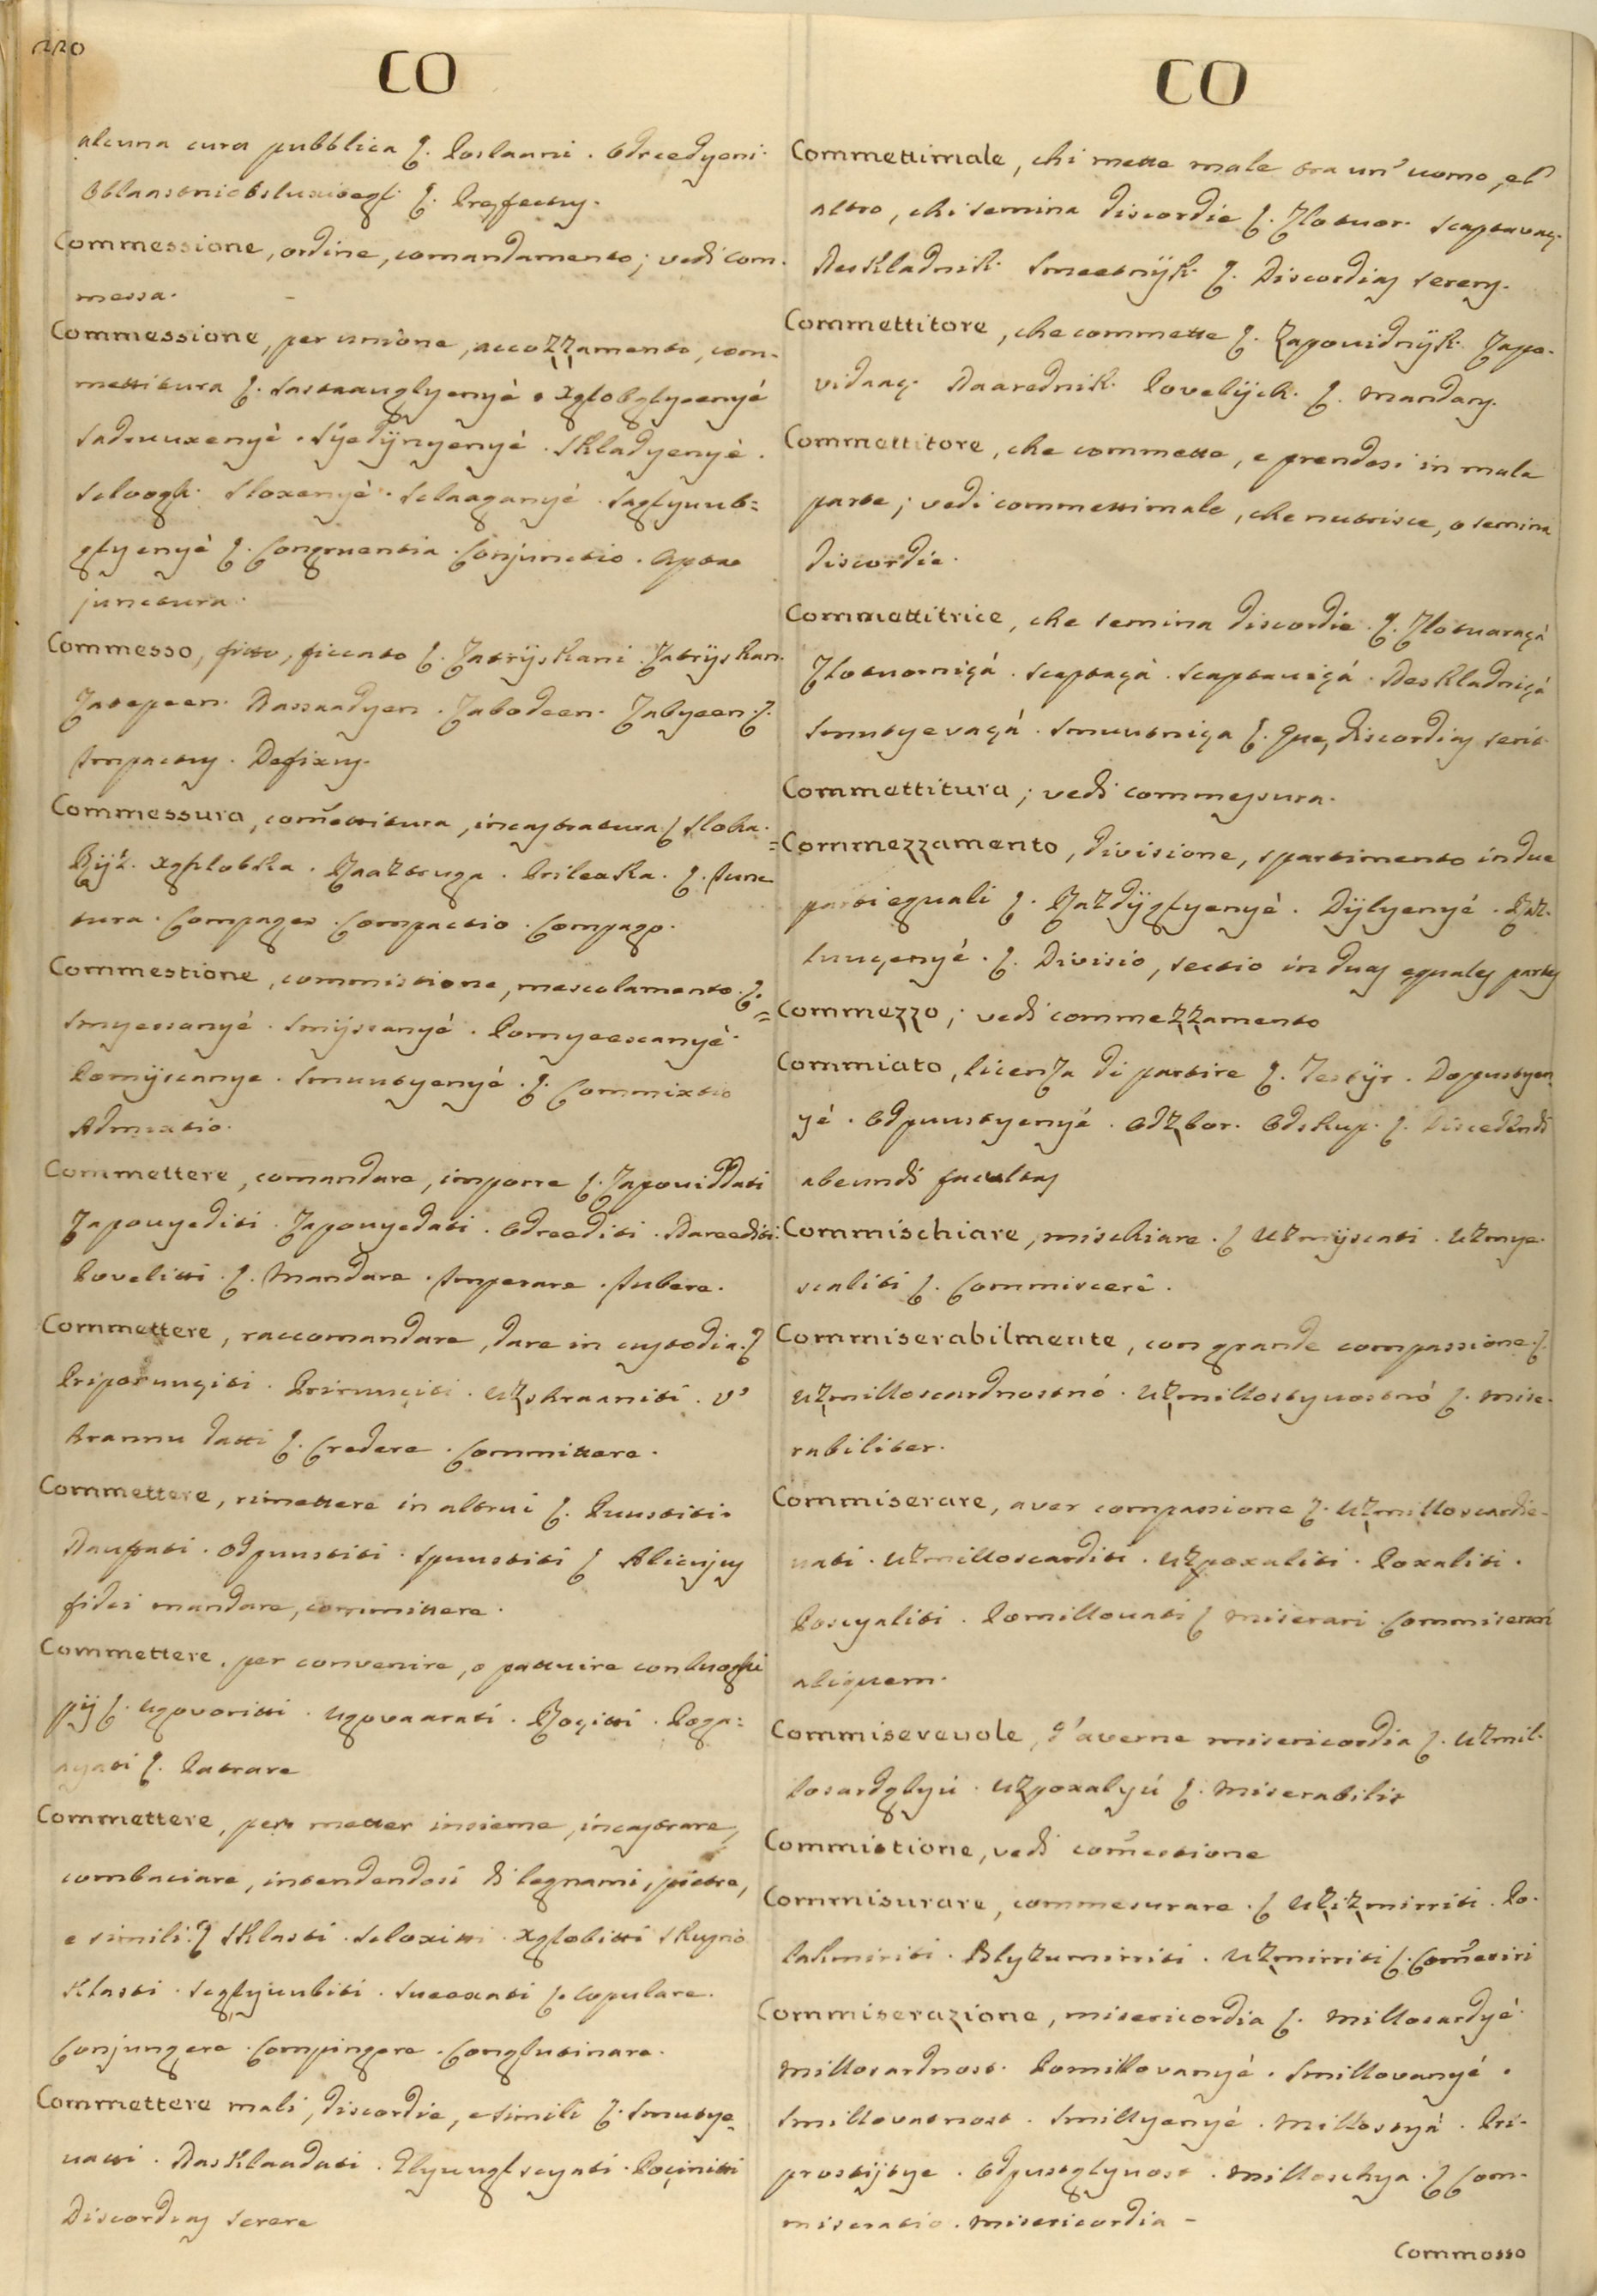 220
CO
alcuna cura pubblica ſ. Poslaani. Odreedyeni.
Oblaastnic Osluxivegl. ſ. Pręfectus.
Commessione, ordine, comandamento; vedi com-
messa.
Commessione, per unione, accozzamento, com-
mettitura ſ. Sastaauglyenyè. Xglobglyeenyé
Sadruuxenyè. Syedÿnyenyè. Skladyenyè.
Scloogh. Sloxenyè. Sclaaganyè. Saglyuub=
glyenyè ſ. Congruentia. Conjunctio. Apta
junctura.
Commesso, fitto, ficcato ſ. Zatrÿskani. Zatrÿskan.
Zatepeen. Nassaadyen. Zabodeen. Zabyeen. ſ.
Impactus. Defixus.
Commessura, com̃ettitura, incastratura ſ Sloka.
Xglobka. Prileaka. ſ. Junc
tura. Compages. Compactio. Compago.
Commestione, commistione, mescolamento. ſ.
Smyessanyè. Smÿssanyè. Pomyeescanyè.
Pomÿscanye. Smuutyenyé. ſ. Commixtio
Admixtio.
Commettere, comandare, imporre ſ. Zapouiddati
Zapouyediti. Zapouyedati. Odreediti. Nareediti.
Povelitti. ſ. Mandare. Imperare. Jubere.
Commettere, raccomandare, dare in custodia. ſ
Priporuuçiti. Priruuçiti. Uzskraaniti. V'
hrannu datti ſ. Credere. Committere.
Commettere, rimettere in altrui ſ. Puustiti.
Naupati. Odpuustiti. Spuustiti ſ Alicujus
fidei mandare, committere.
Commettere, per convenire, o pattuire con luoghi
pÿ ſ. Ugovoritti. Ugovaarati. Roçitti. Poga=
ayati ſ. Patrare
Commettere, per metter insieme, incastrare,
combaciare, intendendosi di legnami, pietre,
e simili. ſ Sklasti. Scloxitti. Xglobitti Skupno
klasti. Seglyuubiti. Sueexati ſ. Copulare.
Conjungere. Compingere. Conglutinare.
Commettere mali, discordie, e simili ſ. Smutye
uatti. Nasklaadati. Poçinitti
Discordias serere
CO
Commettimale, chi mette male tra un' uomo, e l'
altro, chi semina discordie ſ. Zlotuor. Scaptavaç.
Neskladnik. Smeetnÿk. ſ. Discordias serens.
Commettitore, che commette ſ. Zapouidnÿk. Zapo-
vidaaç. Naarednik. Povelÿch. ſ. Mandans.
Commettitore, che commette, e prendesi in mala
parte; vedi commettimale, che nutrisce, o semina
discordie.
Commettitrice, che semina discordie. ſ. Zlotuaraçà
Zlotuorniçá. Scaptaçà. Scaptauiçá. Neskladniçá
Smutyevaçá. Smuutniça ſ. Quę discordias serit.
Commettitura; vedi commessura.
Commezzamento, divisione, spartimento in due
parti eguali ſ. Razdÿglyenyè. Dÿlyenyé. Raz-
luuçenyè. ſ. Divisio, sectio in duas equales partes
Commezzo; vedi commezzamento
Commiato, licenza di partire ſ. Testÿr. Dopustyen
yé. Odpuustyenyé. Odzbor. Odskup. ſ. Discedendi
abeundi facultas
Commischiare, mischiare. ſ Uzmÿscati. Uzmye-
scaliti ſ. Commiscere.
Commiserabilmente, con grande compassione. ſ.
Uzmilloscardnostnó. Uzmillostyuostnó ſ. Mise-
rabiliter.
Commiserare, aver compassione ſ. Uzmilloscardie-
uati. Uzmilloscarditi. Uzpoxaliti. Poxaliti.
Poscyaliti. Pomillouati ſ Miserari. Commiserari
aliquem.
Commisevevole, d'averne misericordia ſ. Uzmil-
losardglyú. Uzpoxalyú ſ. Miserabilis
Commistione, vedi com̃estione
Commisurare, commesurare. ſ Uzizmirriti. Po-
lakmiriti. Blyzumirriti. Uzmirriti ſ. Com̃etiri
Commiserazione, misericordia ſ. Millosardyè.
Millosardnost. Pomillovanyè. Smillovanyé.
Smillovatnost. Smillyenyè. Millostyá. Pri-
prostÿtye. Odpustglyuost. Milloschya. ſ Com-
miseratio. Misericordia -
Commosso